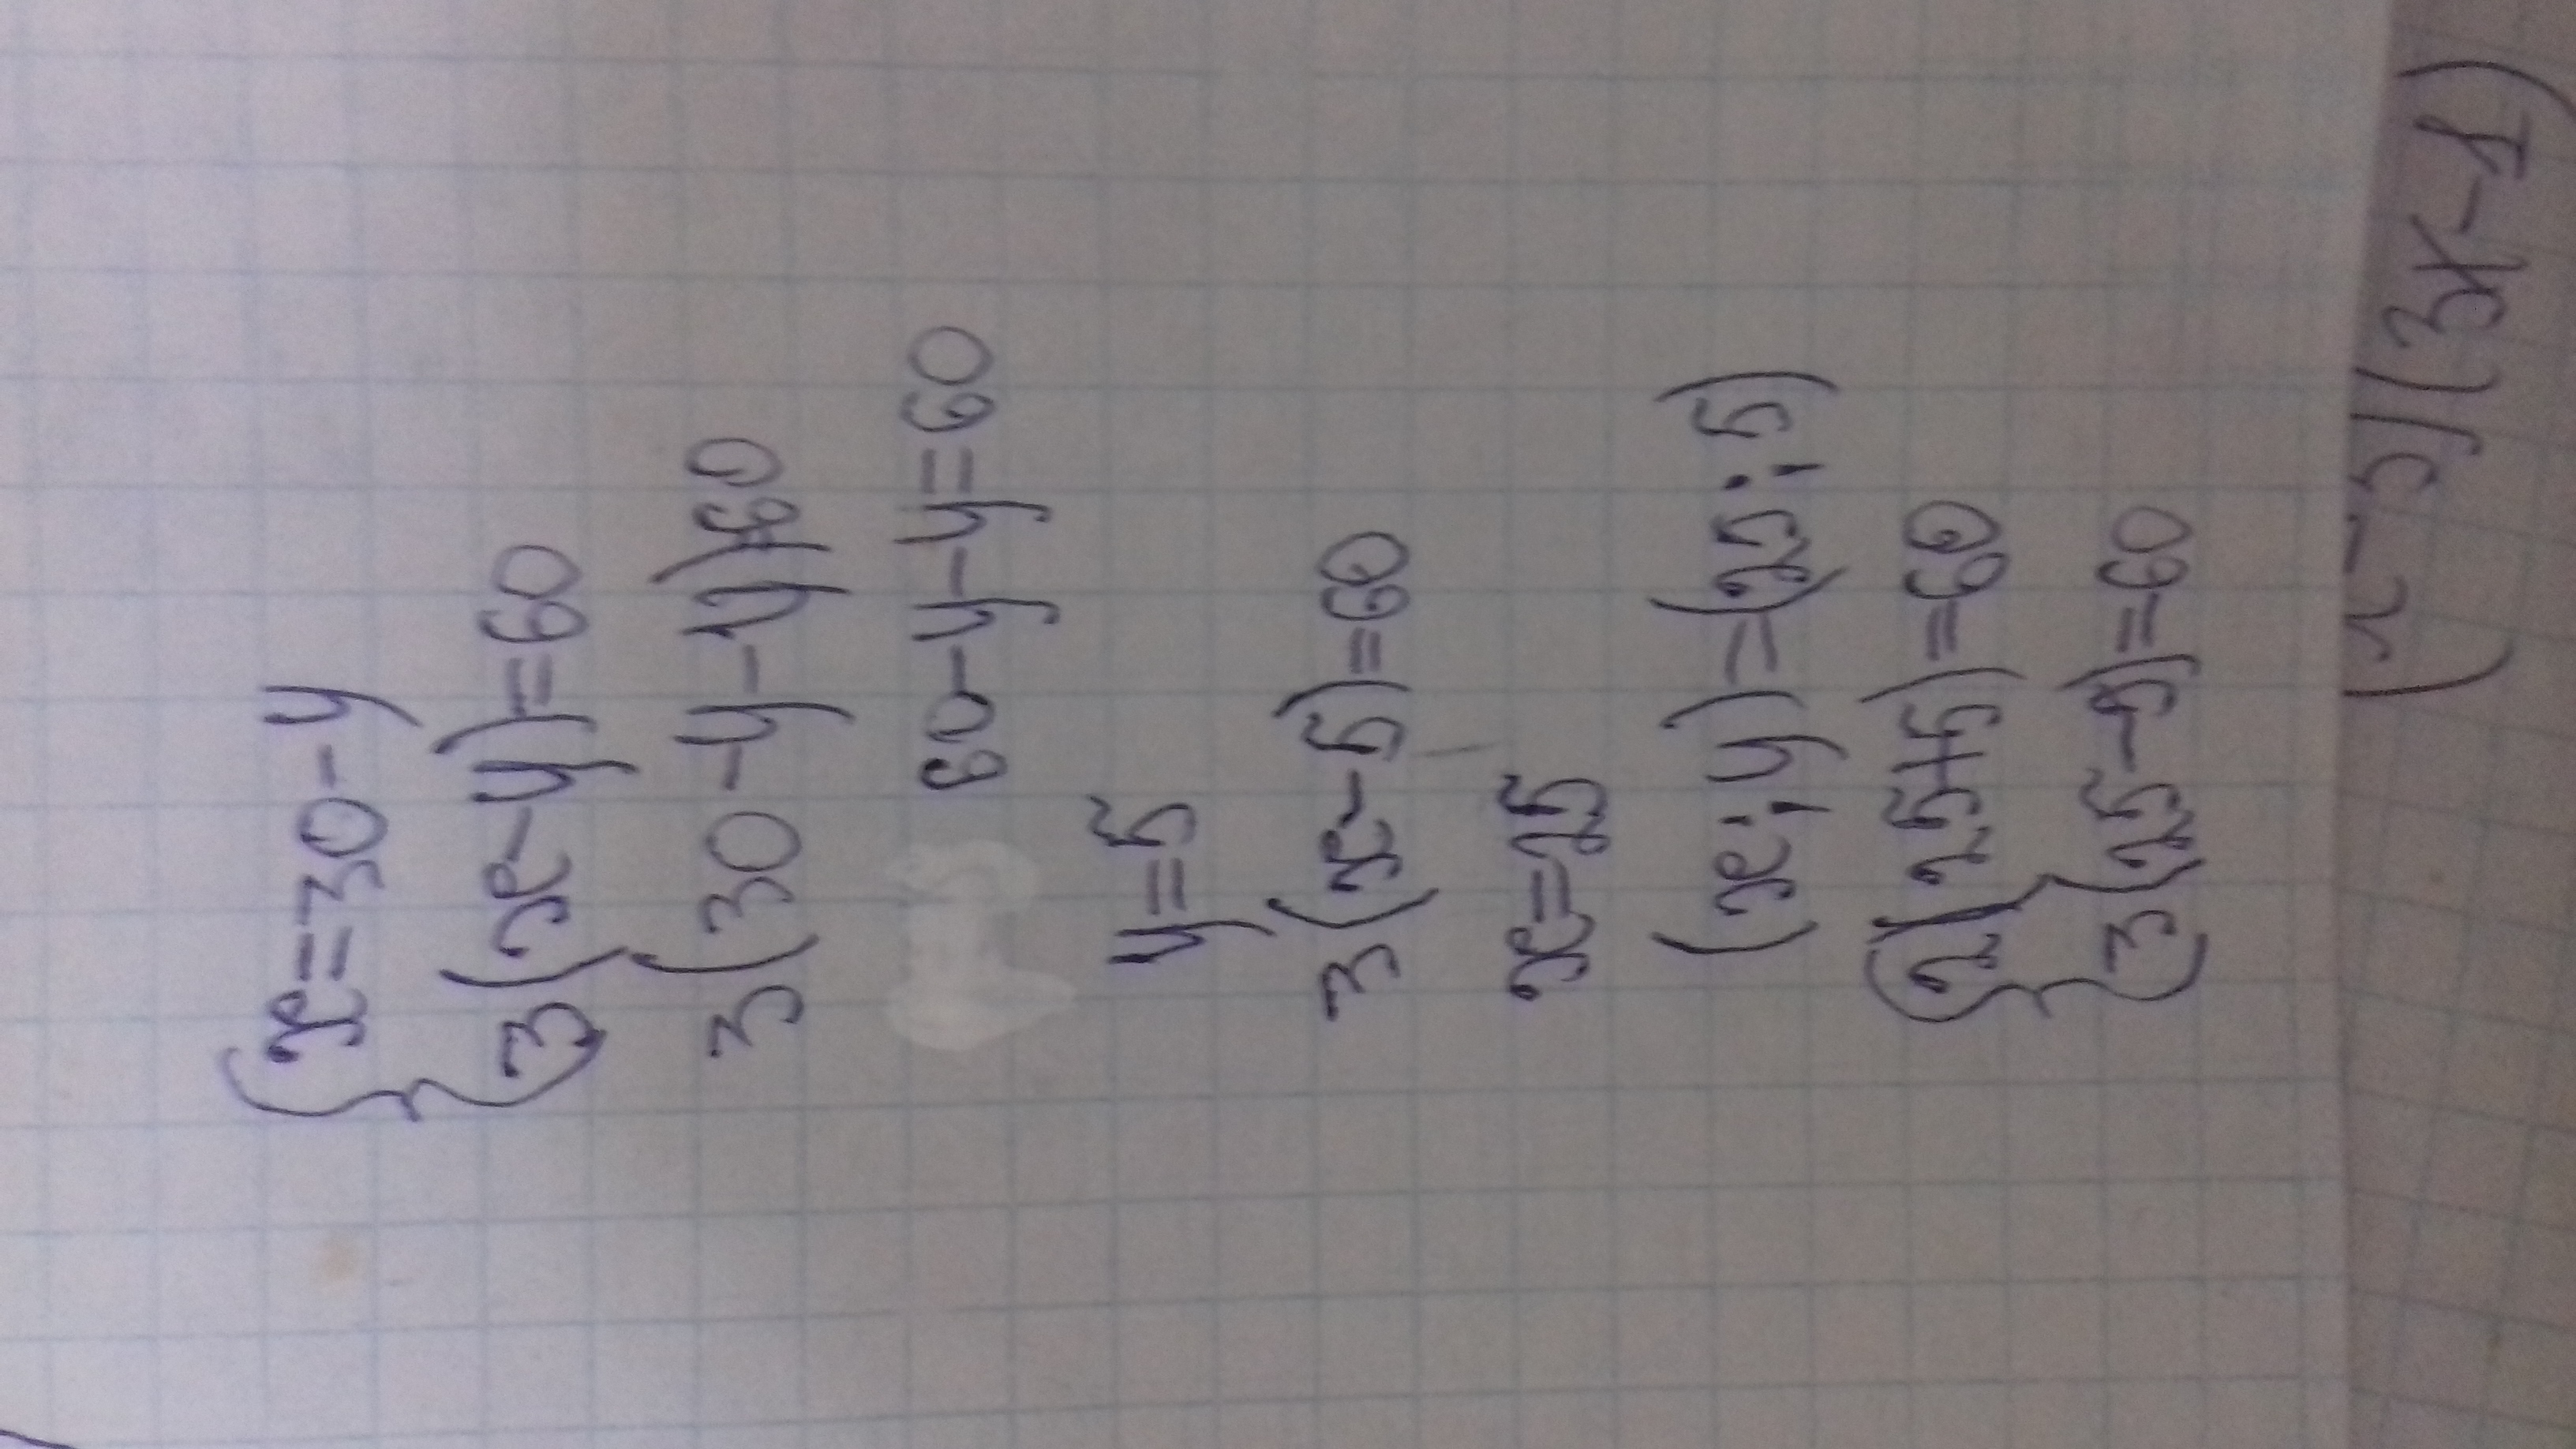 x=30-y
3(x-y)=60
3(30-y-y)60
60-y-y=60
y=5
3(x-5)=60
x=25
(x;y)=(25;5)
2(25+5)=60
3(25-5)=60